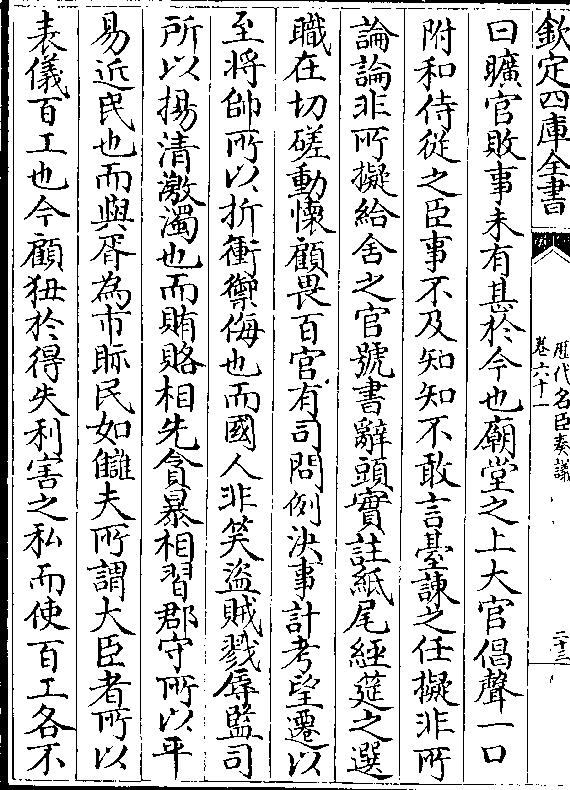 欽定四庫全書
歷代名臣奏議
卷六十一
二十三
曰曠官敗事未有甚於今也廟堂之上大官倡聲一口
附和侍從之臣事不及知知不敢言臺諫之任擬非所
論論非所擬給舍之官號書辭頭實註紙尾經筵之選
職在切磋動懷顧畏百官有司問例決事計考望遷以
至將帥所以折衝禦侮也而國人非笑盜賊戮辱監司
所以揚清激濁也而賄賂相先貪暴相習郡守所以平
易近民也而與胥為市眎民如讎夫所謂大臣者所以
表儀百工也今顧狃於得失利害之私而使百工各不